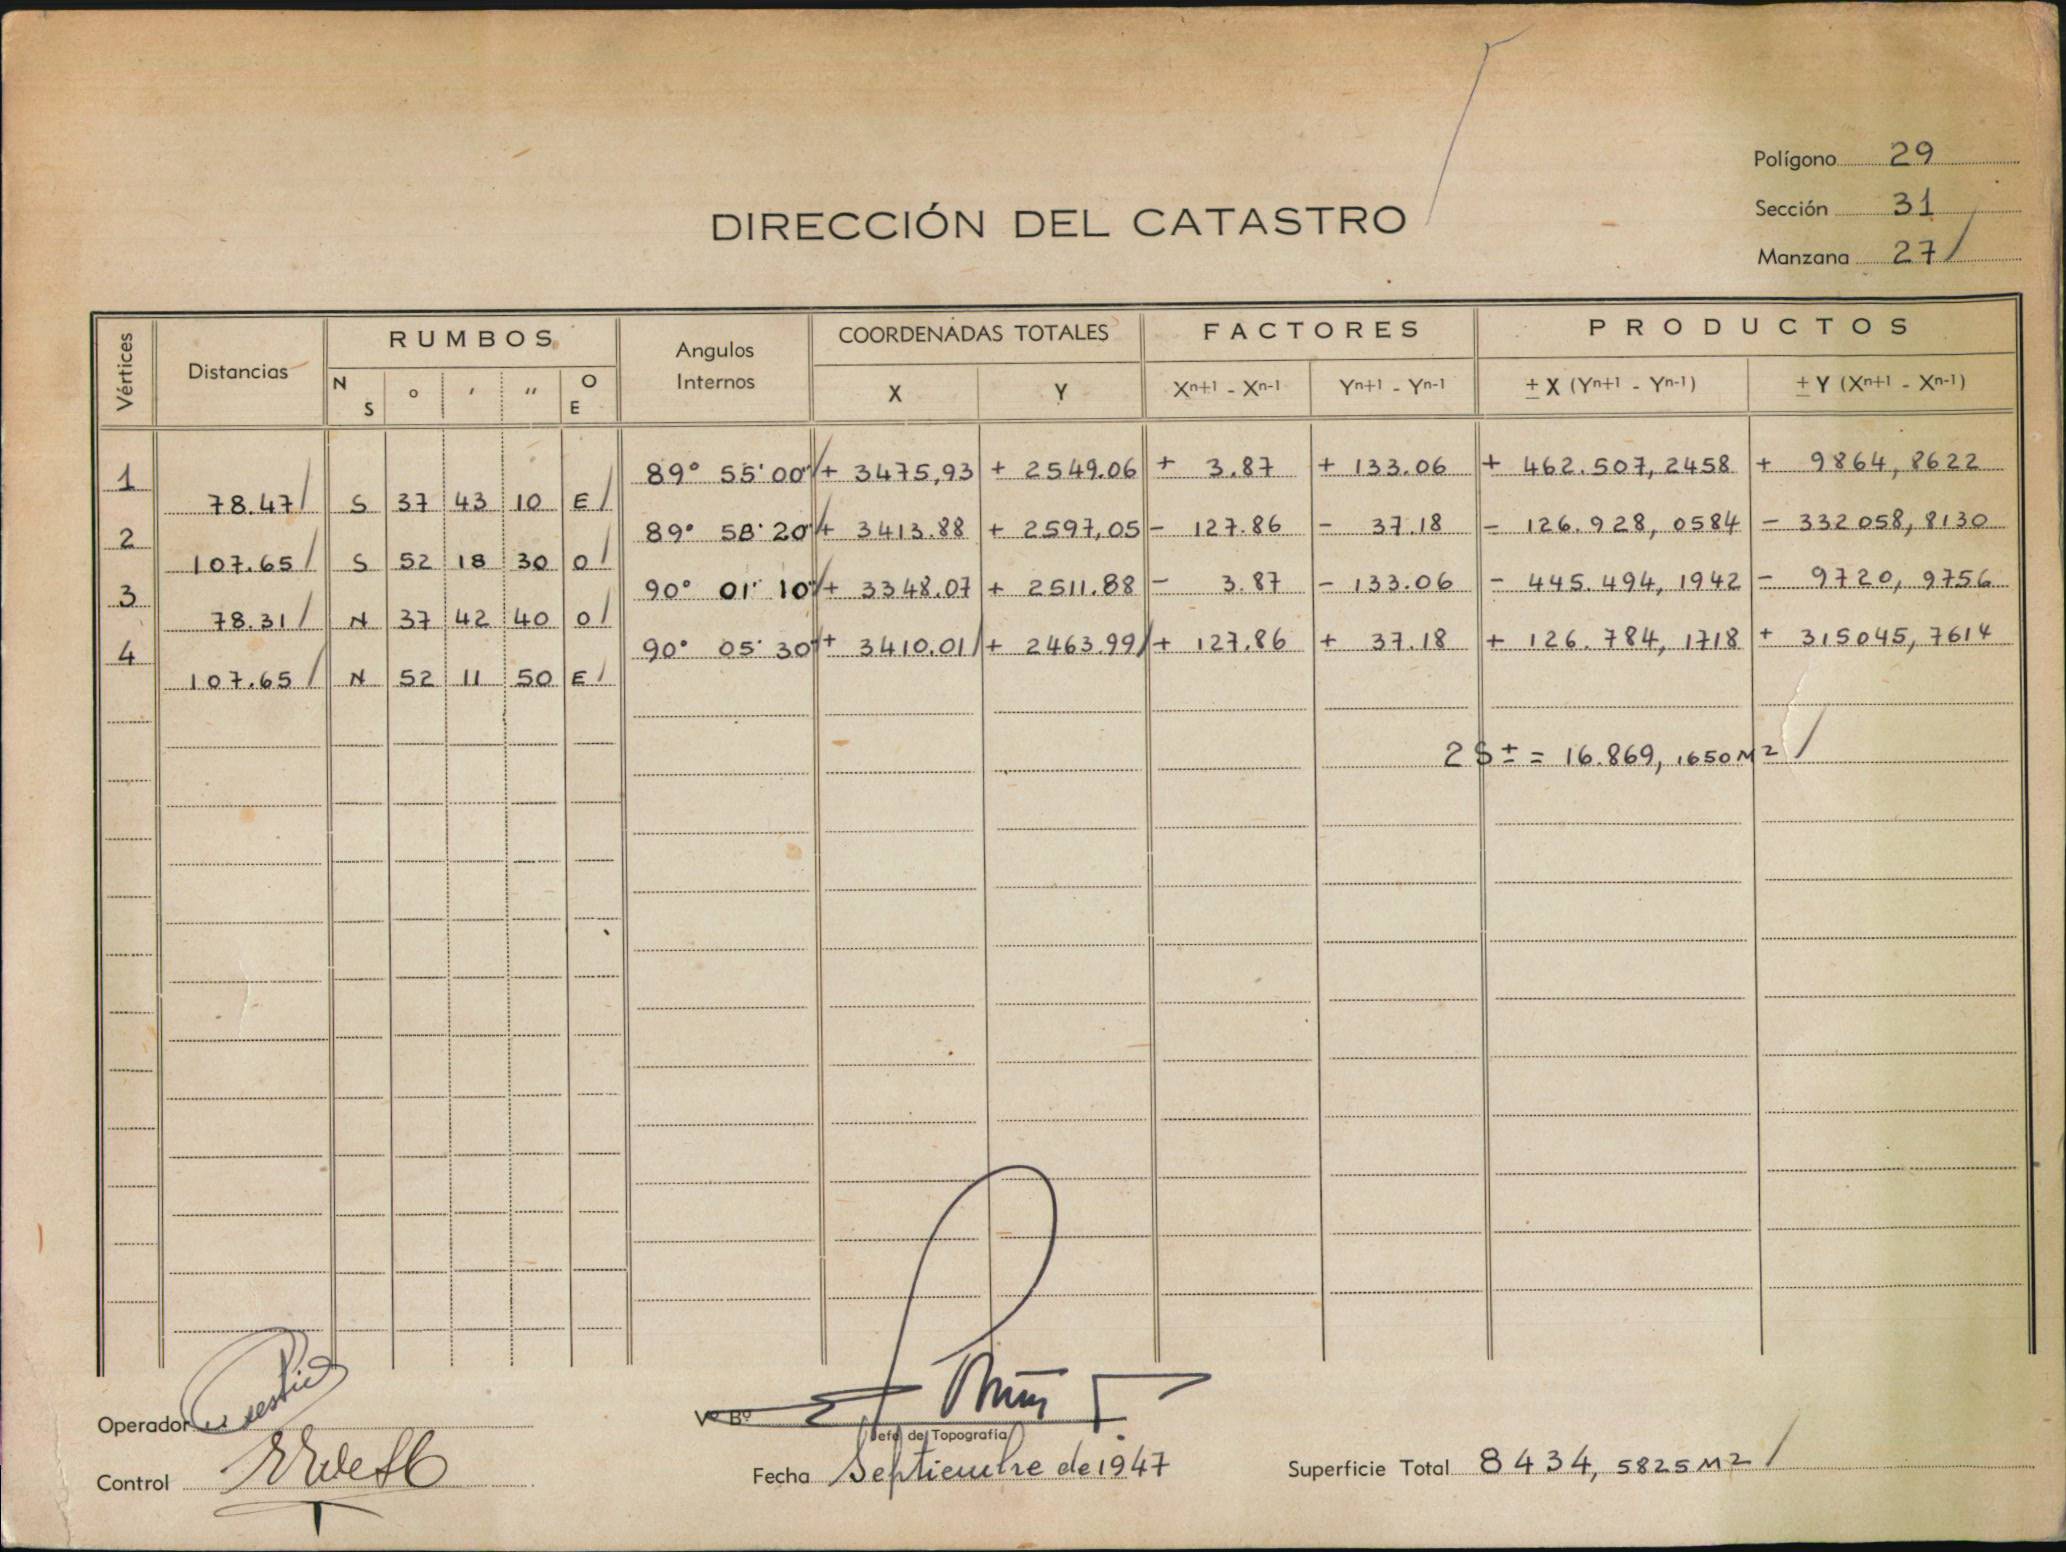 Polígono 29
Sección 31
DIRECCIÓN DEL CATASTRO
Manzana 27
Vértices Distancias RUMBOS Angulos Internos COORDENADAS TOTALES FACTORES PRODUCTOS
N S ° ′ ″ O E X Y Xn+1 - Xn-1 Yn+1 - Yn-1 ± X (Yn+1 - Yn-1) ± Y (Xn+1 - Xn-1)
1 89° 55' 00" + 3475,93 + 2549.06 + 3.87 + 133.06 + 462.507,2458 + 9864,8622
78.47 S 37 43 10 E
2 89° 58' 20" + 3413.88 + 2597,05 - 127.86 - 37.18 - 126.928,0584 - 332058,8130
107.65 S 52 18 30 O
3 90° 01' 10" + 3348.07 + 2511.88 - 3.87 - 133.06 - 445.494,1942 - 9720,9756
78.31 N 37 42 40 O
4 90° 05' 30" + 3410.01 + 2463.99 + 127.86 + 37.18 + 126.784,1718 + 315045,7614
107.65 N 52 11 50 E
2 S ± = 16.869,1650 M2
Operador
Vº Bº
Jefe de Topografía
Control
Fecha Septiembre de 1947
Superficie Total 8434, 5825 M2